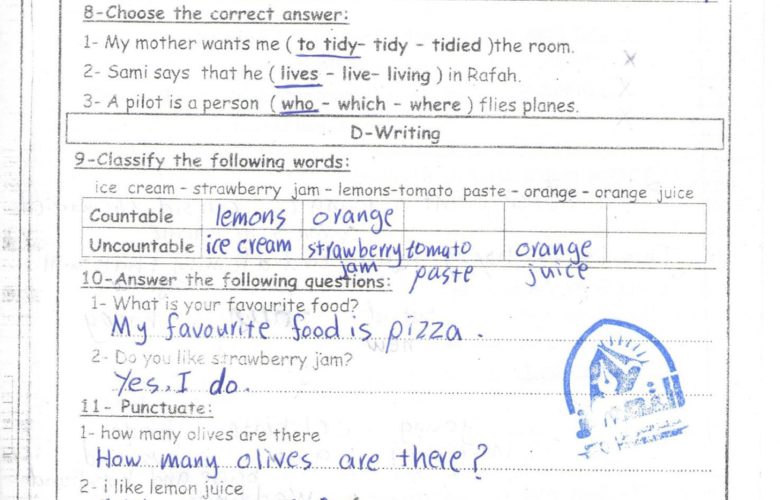 8-Choose the correct answer:
1- My mother wants me ( to tidy- tidy - tidied )the room.
2- Sami says that he ( lives - live- living ) in Rafah.
3- A pilot is a person ( who - which - where ) flies planes.
D-Writing
9-Classify the following words:
ice cream - strawberry jam - lemons-tomato paste - orange - orange juice
Countable lemons orange
Uncountable ice cream strawberry jam tomato paste orange juice
10-Answer the following questions:
1- What is your favourite food?
My favourite food is pizza.
2- Do you like strawberry jam?
Yes, I do.
11- Punctuate:
1- how many olives are there
How many olives are there?
2- i like lemon juice